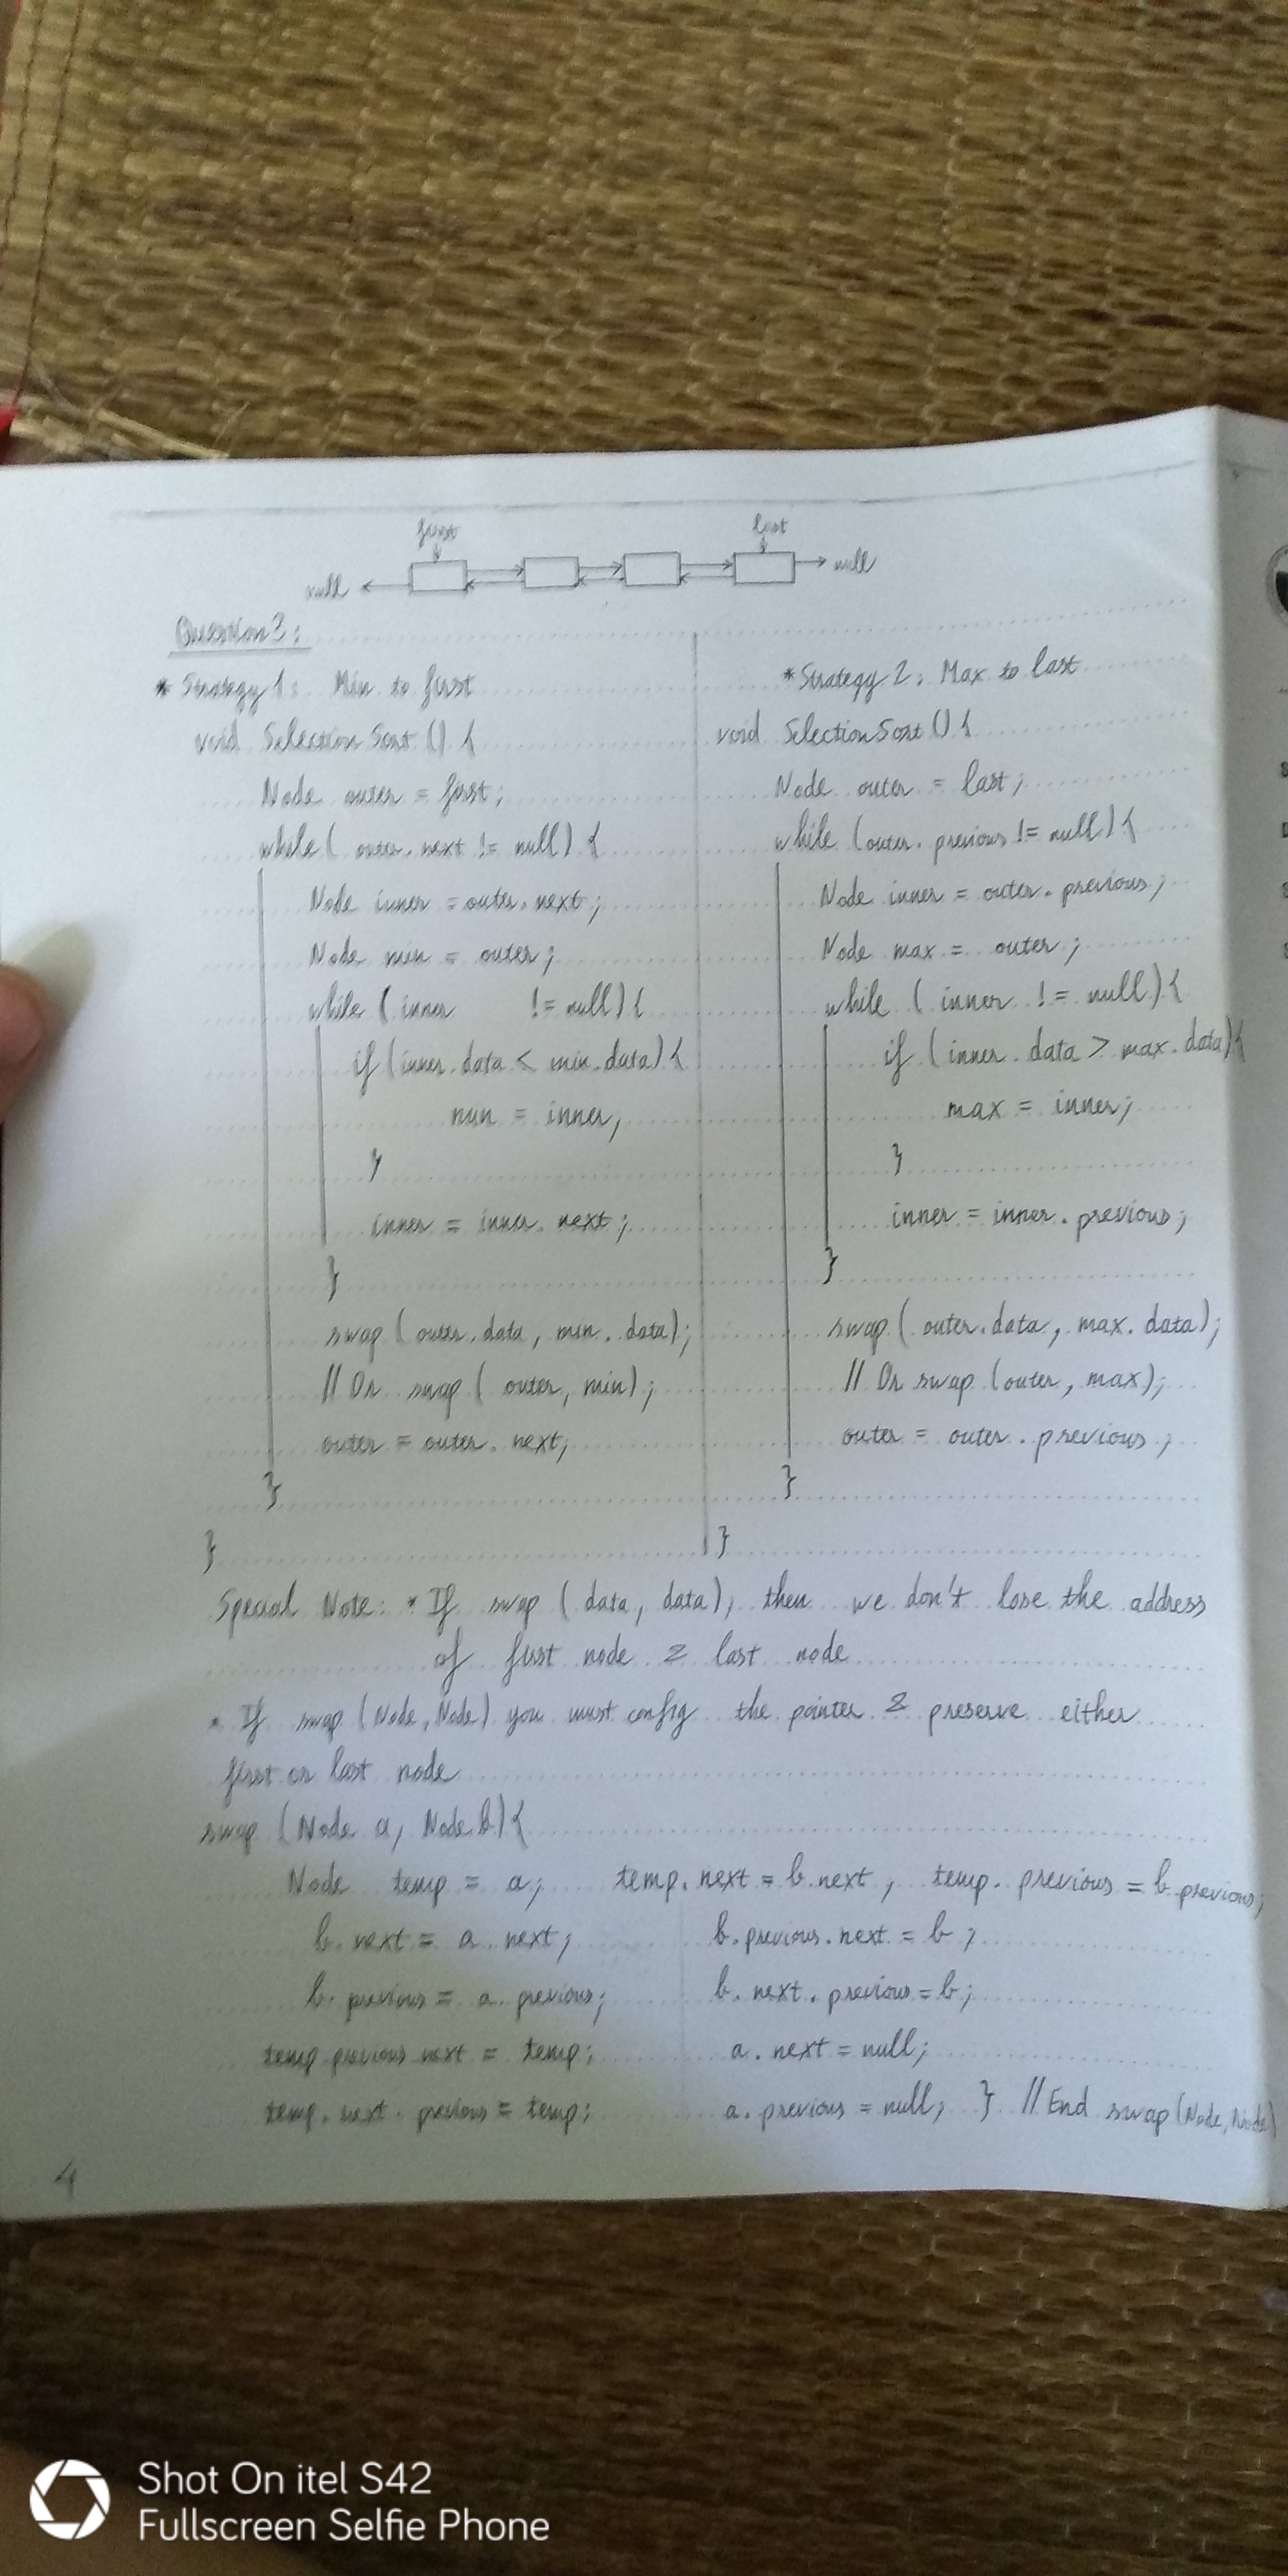 first
last
null
null
Question 3:
* Strategy 1: Min to first
void SelectionSort () {
Node outer = first;
while ( outer.next != null) {
Node inner = outer.next;
Node min = outer;
while ( inner != null) {
if (inner.data < min.data) {
min = inner;
}
inner = inner.next;
}
swap ( outer.data, min.data);
// Or swap ( outer, min);
outer = outer.next;
}
}
* Strategy 2: Max to last
void SelectionSort () {
Node outer = last;
while (outer.previous != null) {
Node inner = outer.previous;
Node max = outer;
while ( inner != null) {
if (inner.data > max.data) {
max = inner;
}
inner = inner.previous;
}
swap ( outer.data, max.data);
// Or swap (outer, max);
outer = outer.previous;
}
}
Special Note: * If swap ( data, data), then we don't lose the address
of first node & last node
* If swap (Node, Node) you must config the pointer & preserve either
first or last node
swap (Node a, Node b) {
Node temp = a; temp.next = b.next, temp.previous = b.previous;
b.next = a.next; b.previous.next = b;
b.previous = a.previous; b.next.previous = b;
temp.previous.next = temp; a.next = null;
temp.next.previous = temp; a.previous = null; } // End swap (Node, Node)
4
Shot On itel S42
Fullscreen Selfie Phone